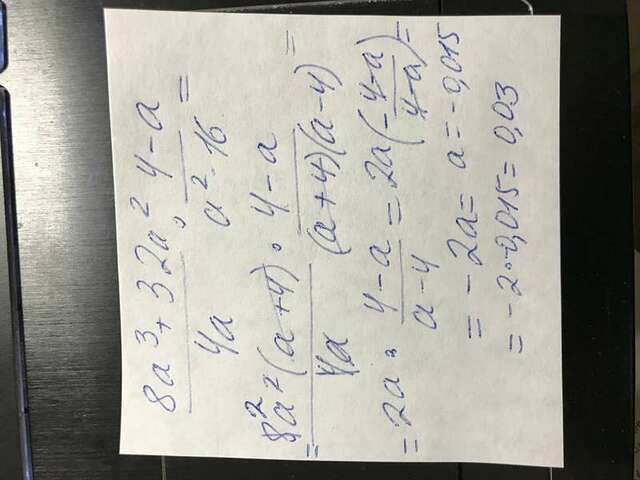 8a³+32a² / 4a · 4-a / a²-16 =
= 8²a²(a+4) / 4a · 4-a / (a+4)(a-4) =
= 2a · 4-a / a-4 = 2a(-4-a / 4-a) =
= -2a = a = -0,015
= -2·-0,015 = 0,03